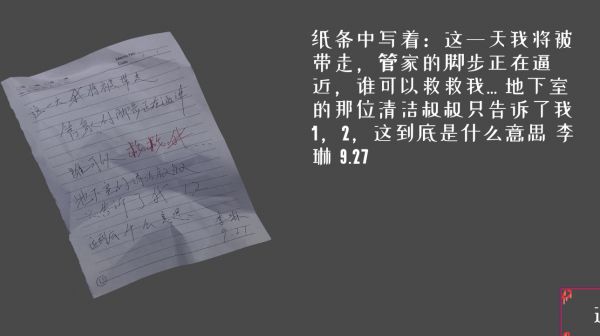 这一天我将被带走
管家的脚步正在逼近
谁可以 救救我...
地下室的那位清洁叔叔
只告诉了我 1 2
这到底是什么意思
李琳
9.27
纸条中写着：这一天我将被
带走，管家的脚步正在逼
近，谁可以救救我... 地下室
的那位清洁叔叔只告诉了我
1，2，这到底是什么意思 李
琳 9.27